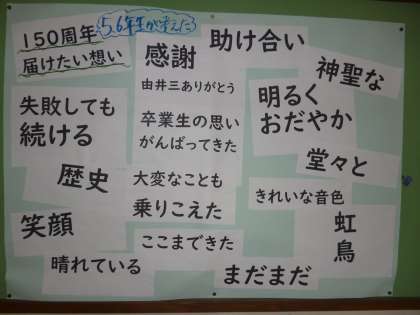 150周年
届けたい想い
5,6年生が考えた
感謝
助け合い
由井三ありがとう
神聖な
失敗しても
続ける
卒業生の思い
がんばってきた
明るく
おだやか
堂々と
歴史
大変なことも
乗りこえた
きれいな音色
笑顔
ここまできた
虹
鳥
晴れている
まだまだ